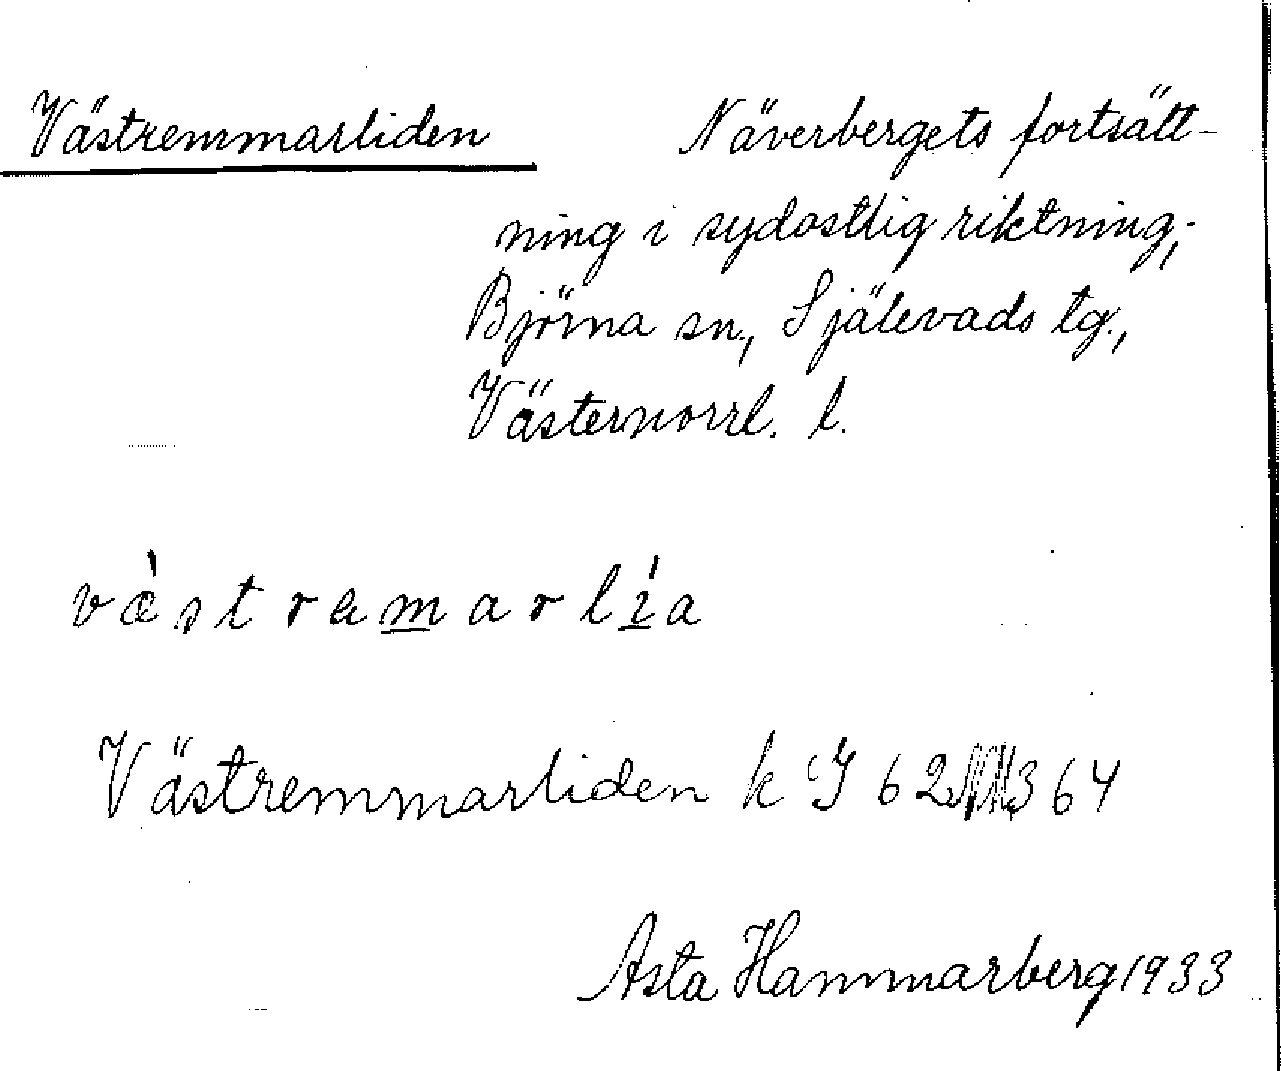 Västremmarliden Näverbergets fortsätt-
ning i sydostlig riktning,
Björna sn, Själevads tg.,
Västernorrl. l.
vàstramarlía
Västremmarliden k J 62 364
Asta Hammarberg 1933